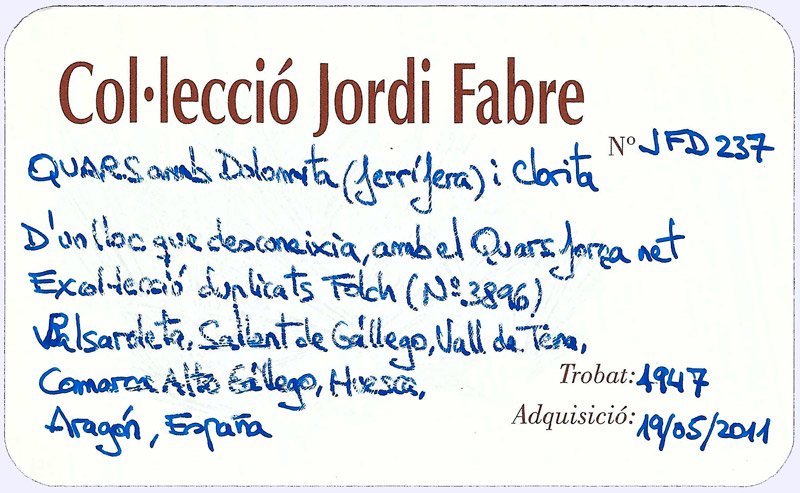 Col·lecció Jordi Fabre
Nº JFD 237
QUARS amb Dolomita (ferrífera) i Clorita
D'un lloc que desconeixia, amb el Quars força net
Excol·lecció duplicats Folch (Nº.3896)
Balsaroleta, Sallent de Gállego, Vall de Tena,
Comarca Alto Gállego, Huesca,
Trobat: 1947
Aragón, España
Adquisició: 19/05/2011